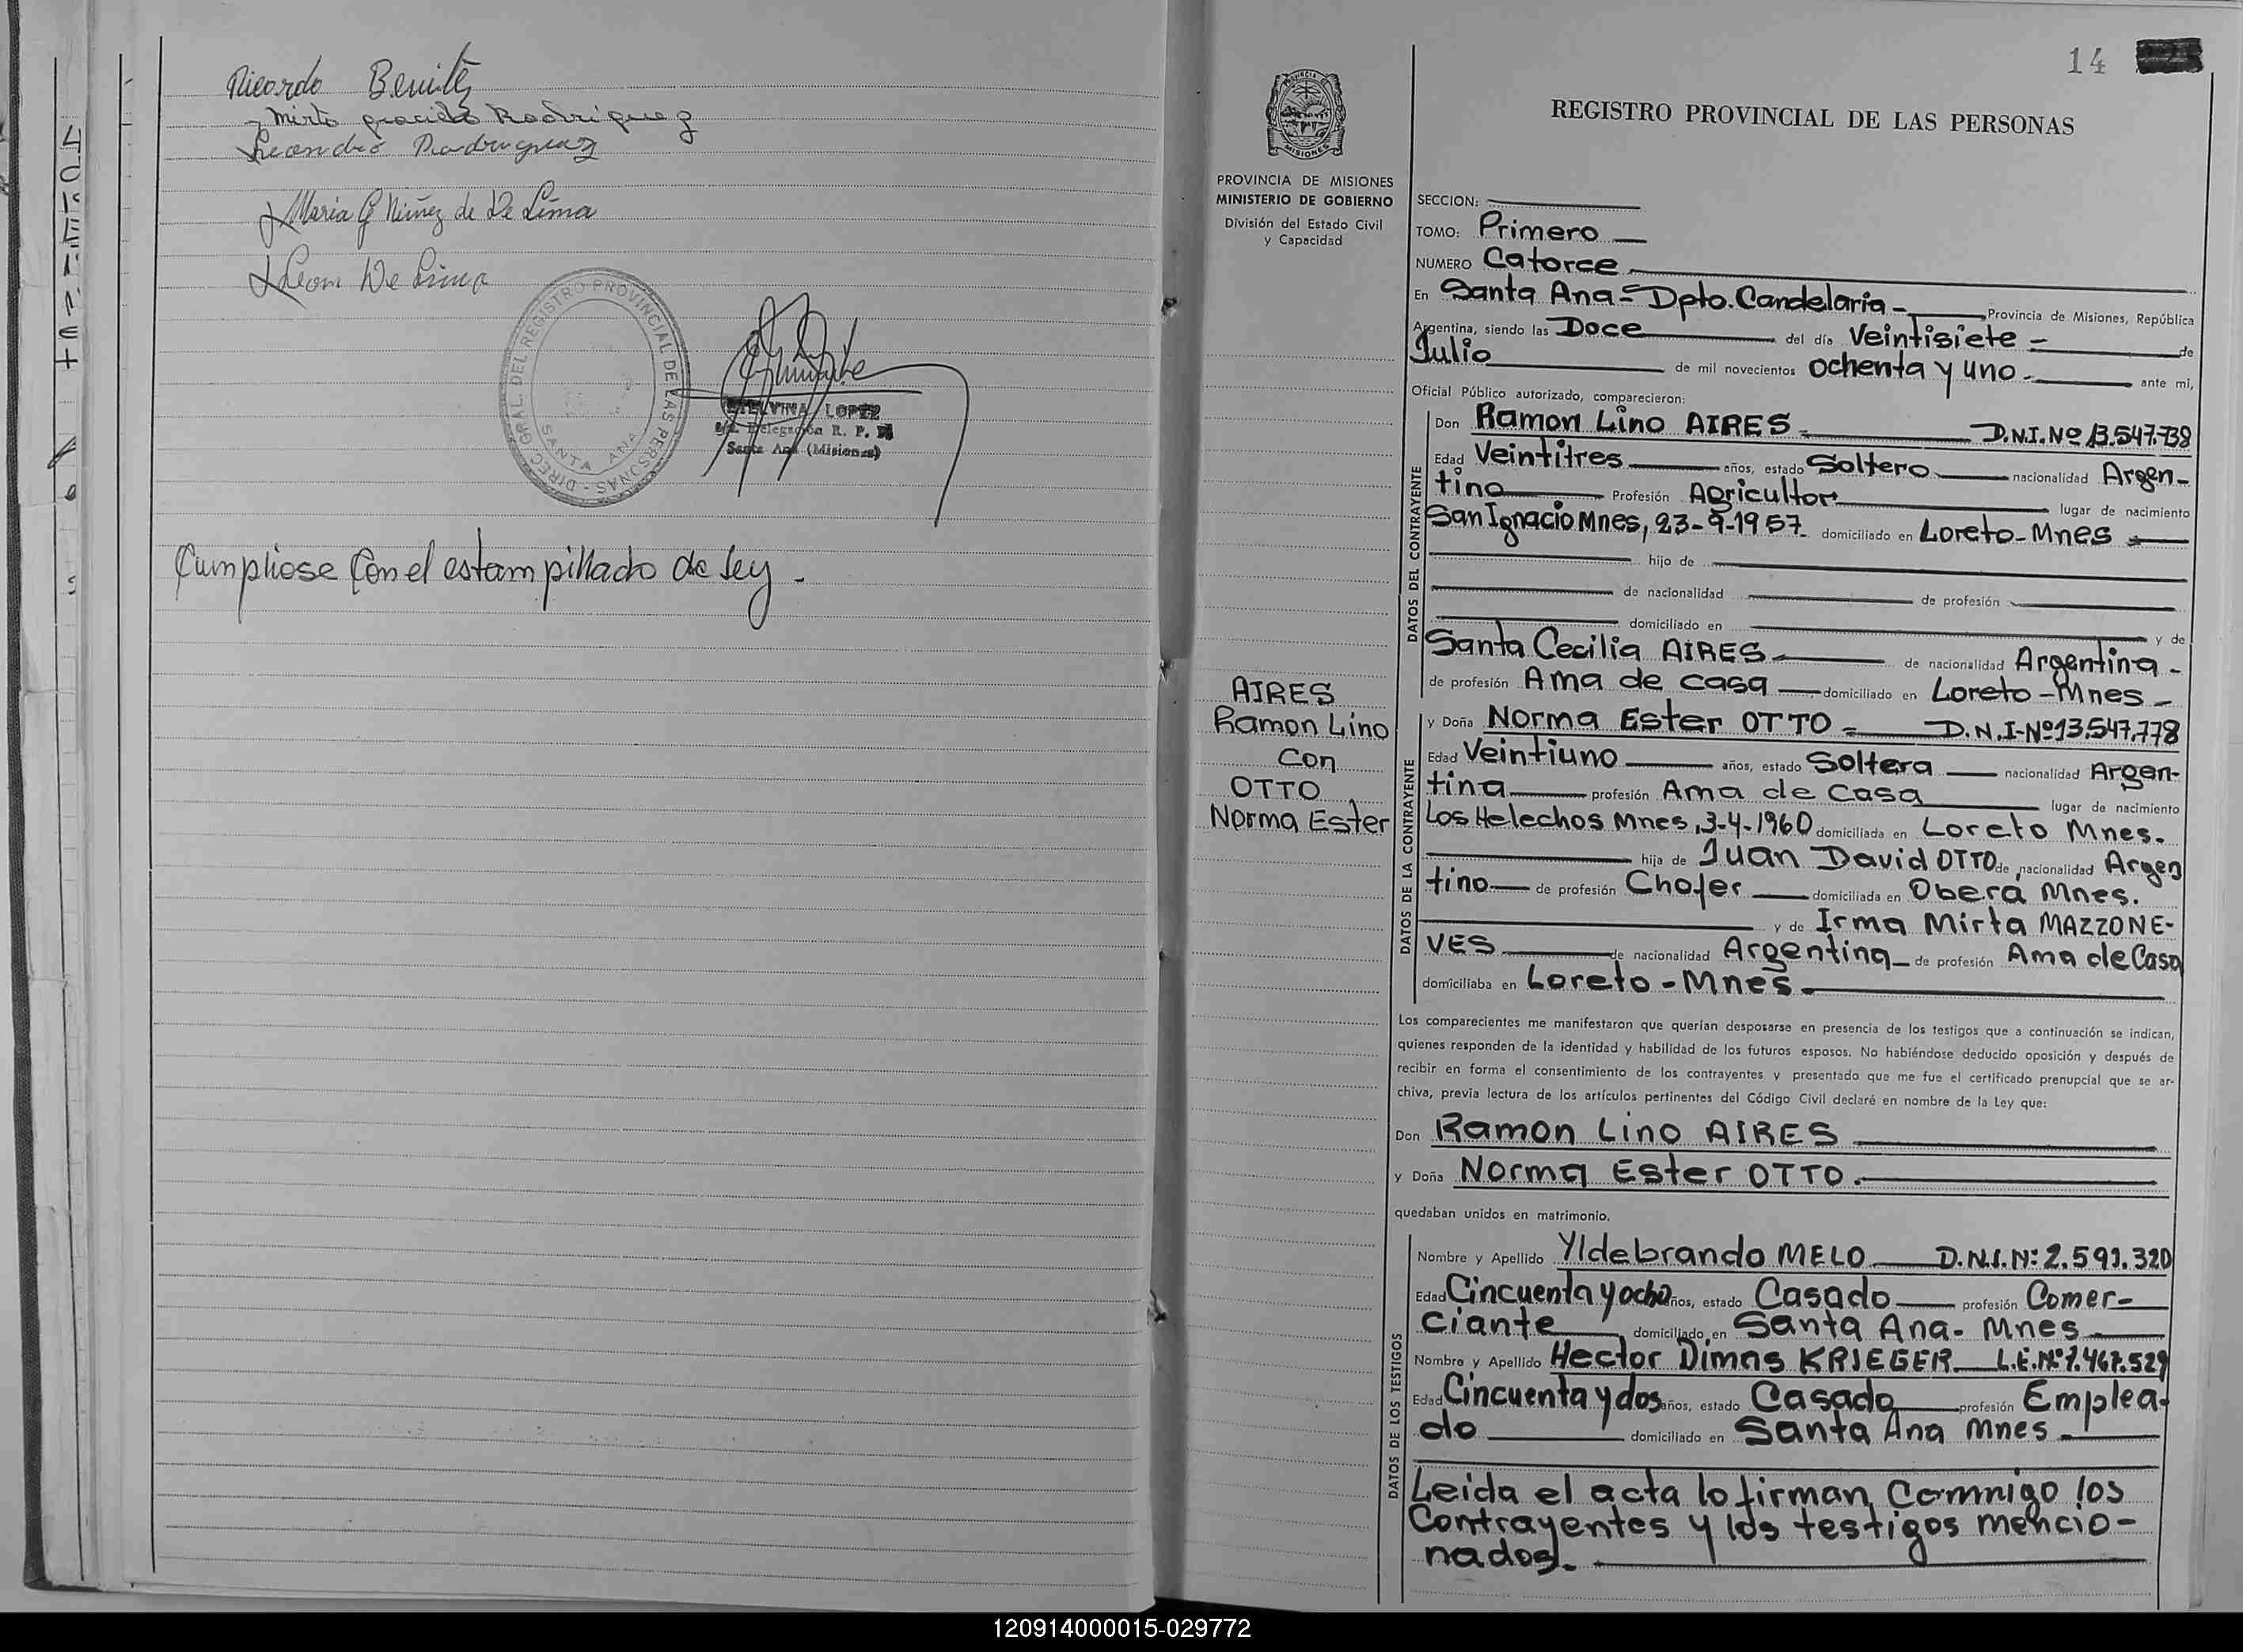 Ricardo Benitez
Mirta graciela Rodriguez
Leandro Rodriguez
Maria G Nuñez de De Lima
Leon De Lima
DIREC. GRAL. DEL REGISTRO PROVINCIAL DE LAS PERSONAS -
SANTA ANA
ETELVINA LOPEZ
Delegación R. P.
Santa Ana (Misiones)
Cumpliose Con el estampillado de ley -
14
PROVINCIA DE MISIONES
MINISTERIO DE GOBIERNO
División del Estado Civil
y Capacidad
AIRES
Ramon Lino
Con
OTTO
Norma Ester
REGISTRO PROVINCIAL DE LAS PERSONAS
SECCION:
TOMO: Primero
NUMERO Catorce
En Santa Ana = Dpto. Candelaria - Provincia de Misiones, República
Argentina, siendo las Doce del día Veintisiete - de
Julio de mil novecientos ochenta y uno - ante mi,
Oficial Público autorizado, comparecieron:
DATOS DEL CONTRAYENTE
Don Ramon Lino AIRES = D.N.I. Nº 13.547.738
Edad Veintitres años, estado Soltero nacionalidad Argen-
tino Profesión Agricultor lugar de nacimiento
San Ignacio Mnes, 23-9-1957. domiciliado en Loreto - Mnes
hijo de
de nacionalidad de profesión
domiciliado en y de
Santa Cecilia AIRES de nacionalidad Argentina -
de profesión Ama de casa domiciliado en Loreto - Mnes -
DATOS DE LA CONTRAYENTE
y Doña Norma Ester OTTO = D.N.I-Nº13.547.778
Edad Veintiuno años, estado Soltera nacionalidad Argen-
tina profesión Ama de Casa lugar de nacimiento
Los Helechos Mnes, 3-4-1960 domiciliada en Loreto Mnes.
hija de Juan David OTTO de nacionalidad Argen
tino de profesión Chofer domiciliada en Oberá Mnes.
y de Irma Mirta MAZZONE-
VES de nacionalidad Argentina - de profesión Ama de Casa
domiciliaba en Loreto - Mnes.
Los comparecientes me manifestaron que querían desposarse en presencia de los testigos que a continuación se indican,
quienes responden de la identidad y habilidad de los futuros esposos. No habiéndose deducido oposición y después de
recibir en forma el consentimiento de los contrayentes y presentado que me fue el certificado prenupcial que se ar-
chiva, previa lectura de los artículos pertinentes del Código Civil declaré en nombre de la Ley que:
Don Ramon Lino AIRES
y Doña Norma Ester OTTO.
quedaban unidos en matrimonio.
DATOS DE LOS TESTIGOS
Nombre y Apellido Yldebrando MELO D.N.I. Nº: 2.591.320
Edad Cincuenta y ocho años, estado Casado profesión Comer-
ciante domiciliado en Santa Ana - Mnes
Nombre y Apellido Hector Dimas KRIEGER L.E.Nº 7.467.529
Edad Cincuenta y dos años, estado Casado profesión Emplea-
do domiciliado en Santa Ana Mnes
Leida el acta lo firman Comnigo los
Contrayentes y los testigos mencio-
nados.
120914000015-029772